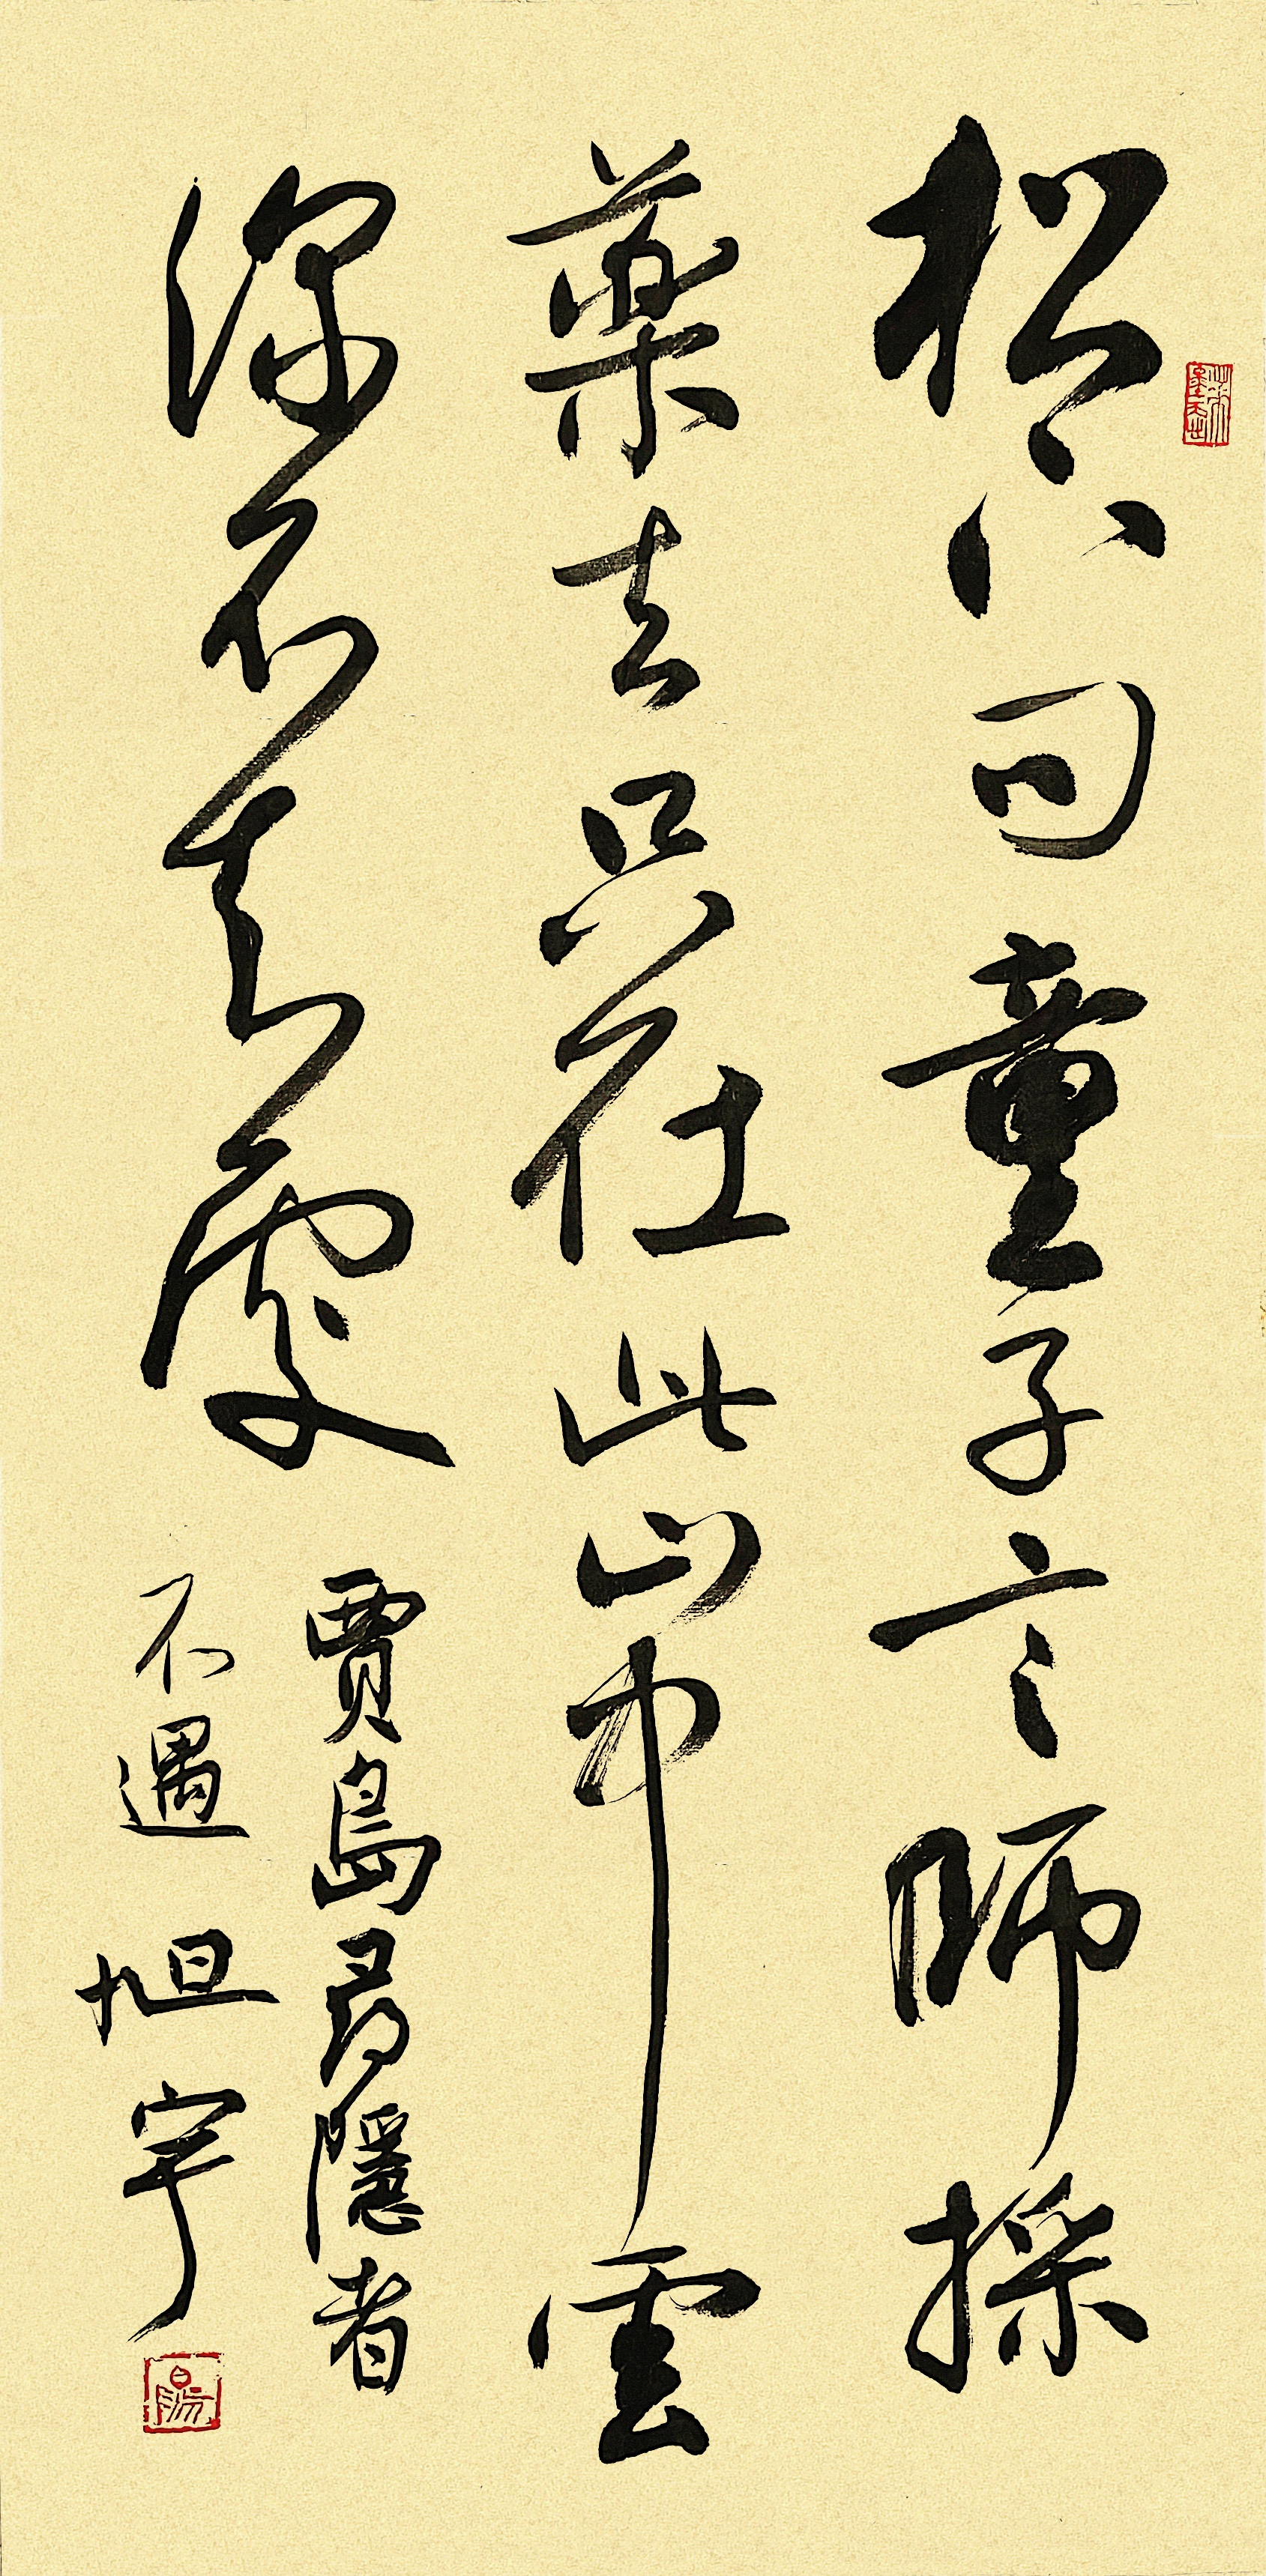 松下问童子言师採
藥去只在此山中雲
深不知處
賈島尋隱者
不遇 旭宇